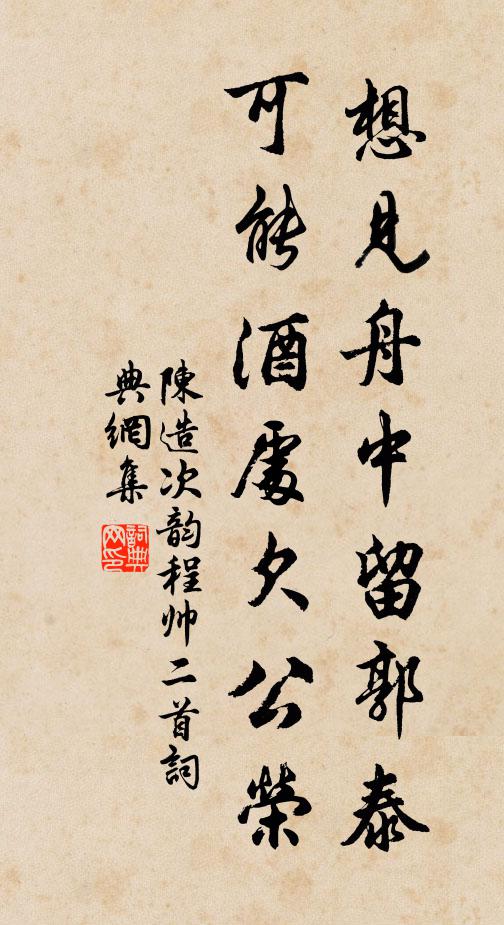 想見舟中留郭泰
可能酒處欠公榮
陳造次韵程帅二首詞
典網集
詞典
网印